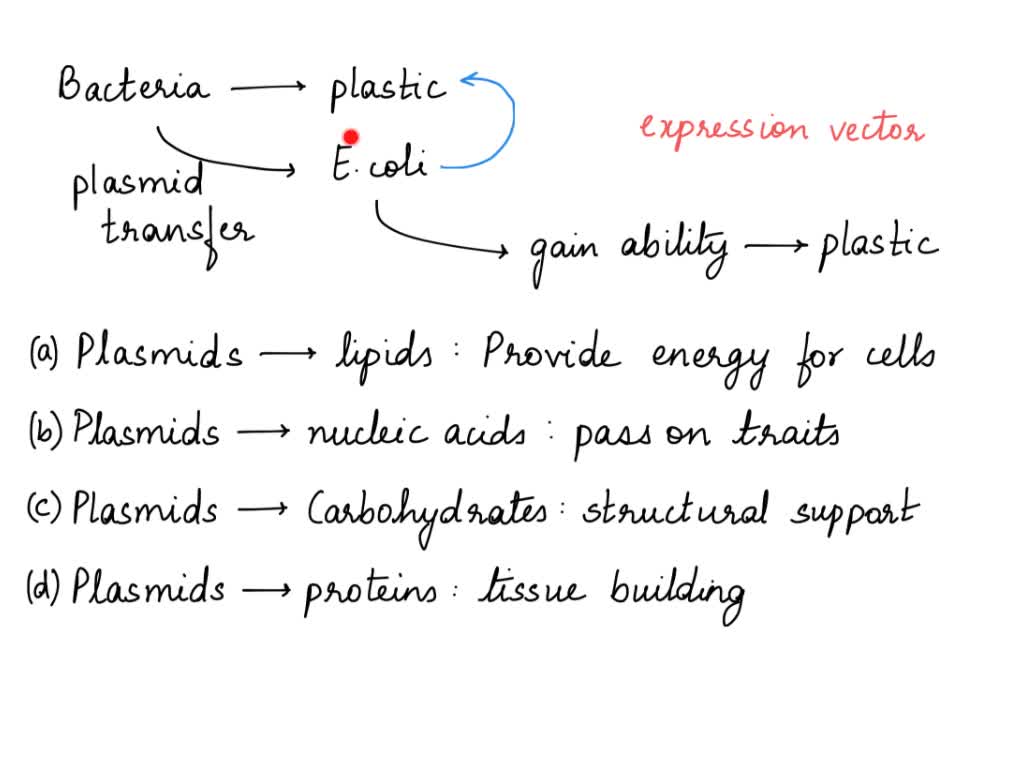 Bacteria → plastic
expression vector
E.coli
plasmid
transfer
gain ability → plastic
(a) Plasmids → lipids : Provide energy for cells
(b) Plasmids → nucleic acids : pass on traits
(c) Plasmids → Carbohydrates : structural support
(d) Plasmids → proteins : tissue building